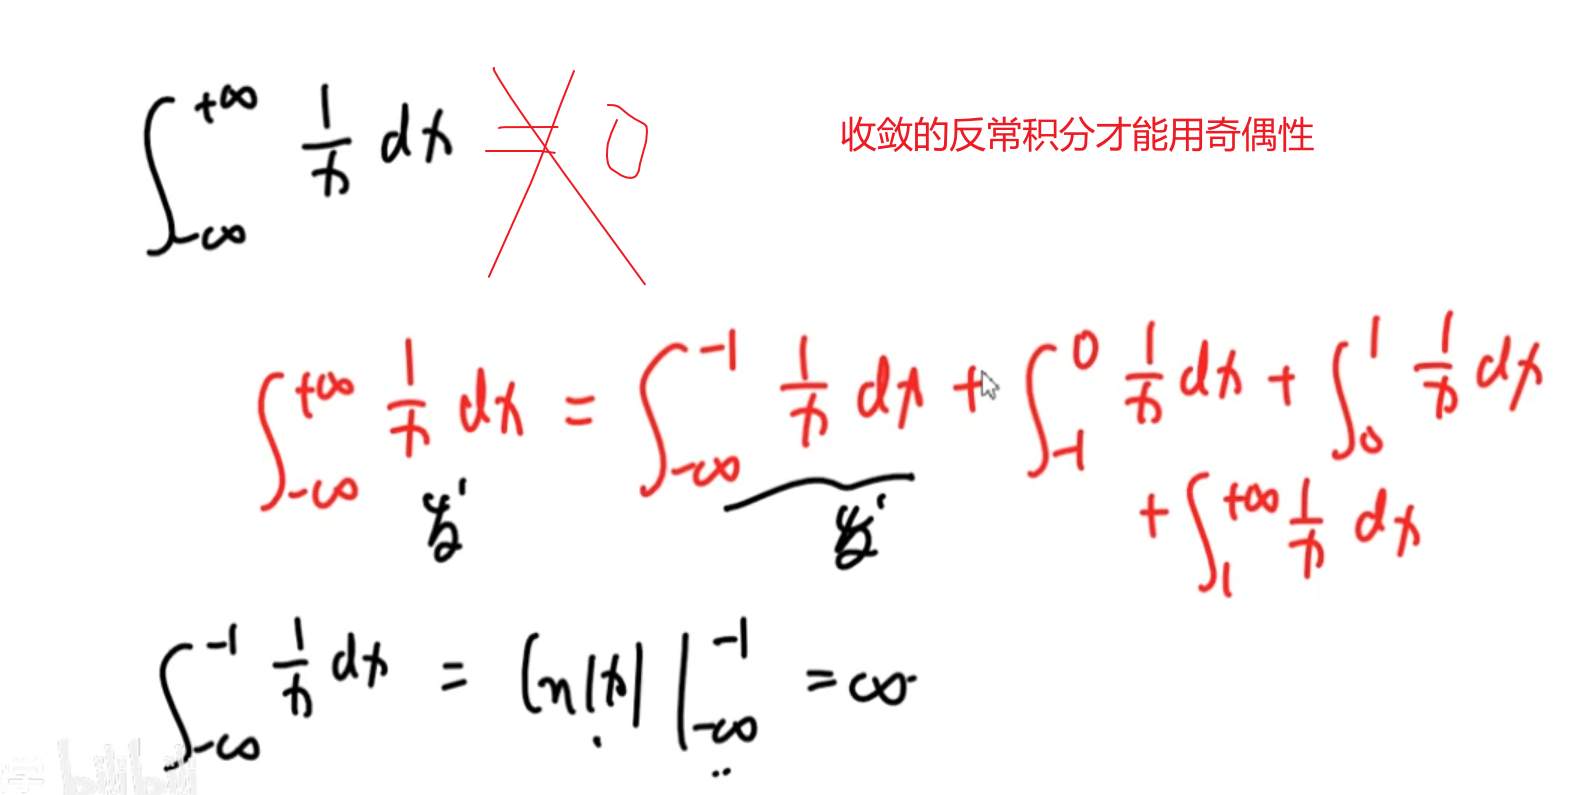 ∫_{-∞}^{+∞} 1/x dx = 0
收敛的反常积分才能用奇偶性
∫_{-∞}^{+∞} 1/x dx = ∫_{-∞}^{-1} 1/x dx + ∫_{-1}^{0} 1/x dx + ∫_{0}^{1} 1/x dx
+ ∫_{1}^{+∞} 1/x dx
∫_{-∞}^{-1} 1/x dx = ln|x| |_{-∞}^{-1} = ∞
学 bilibili